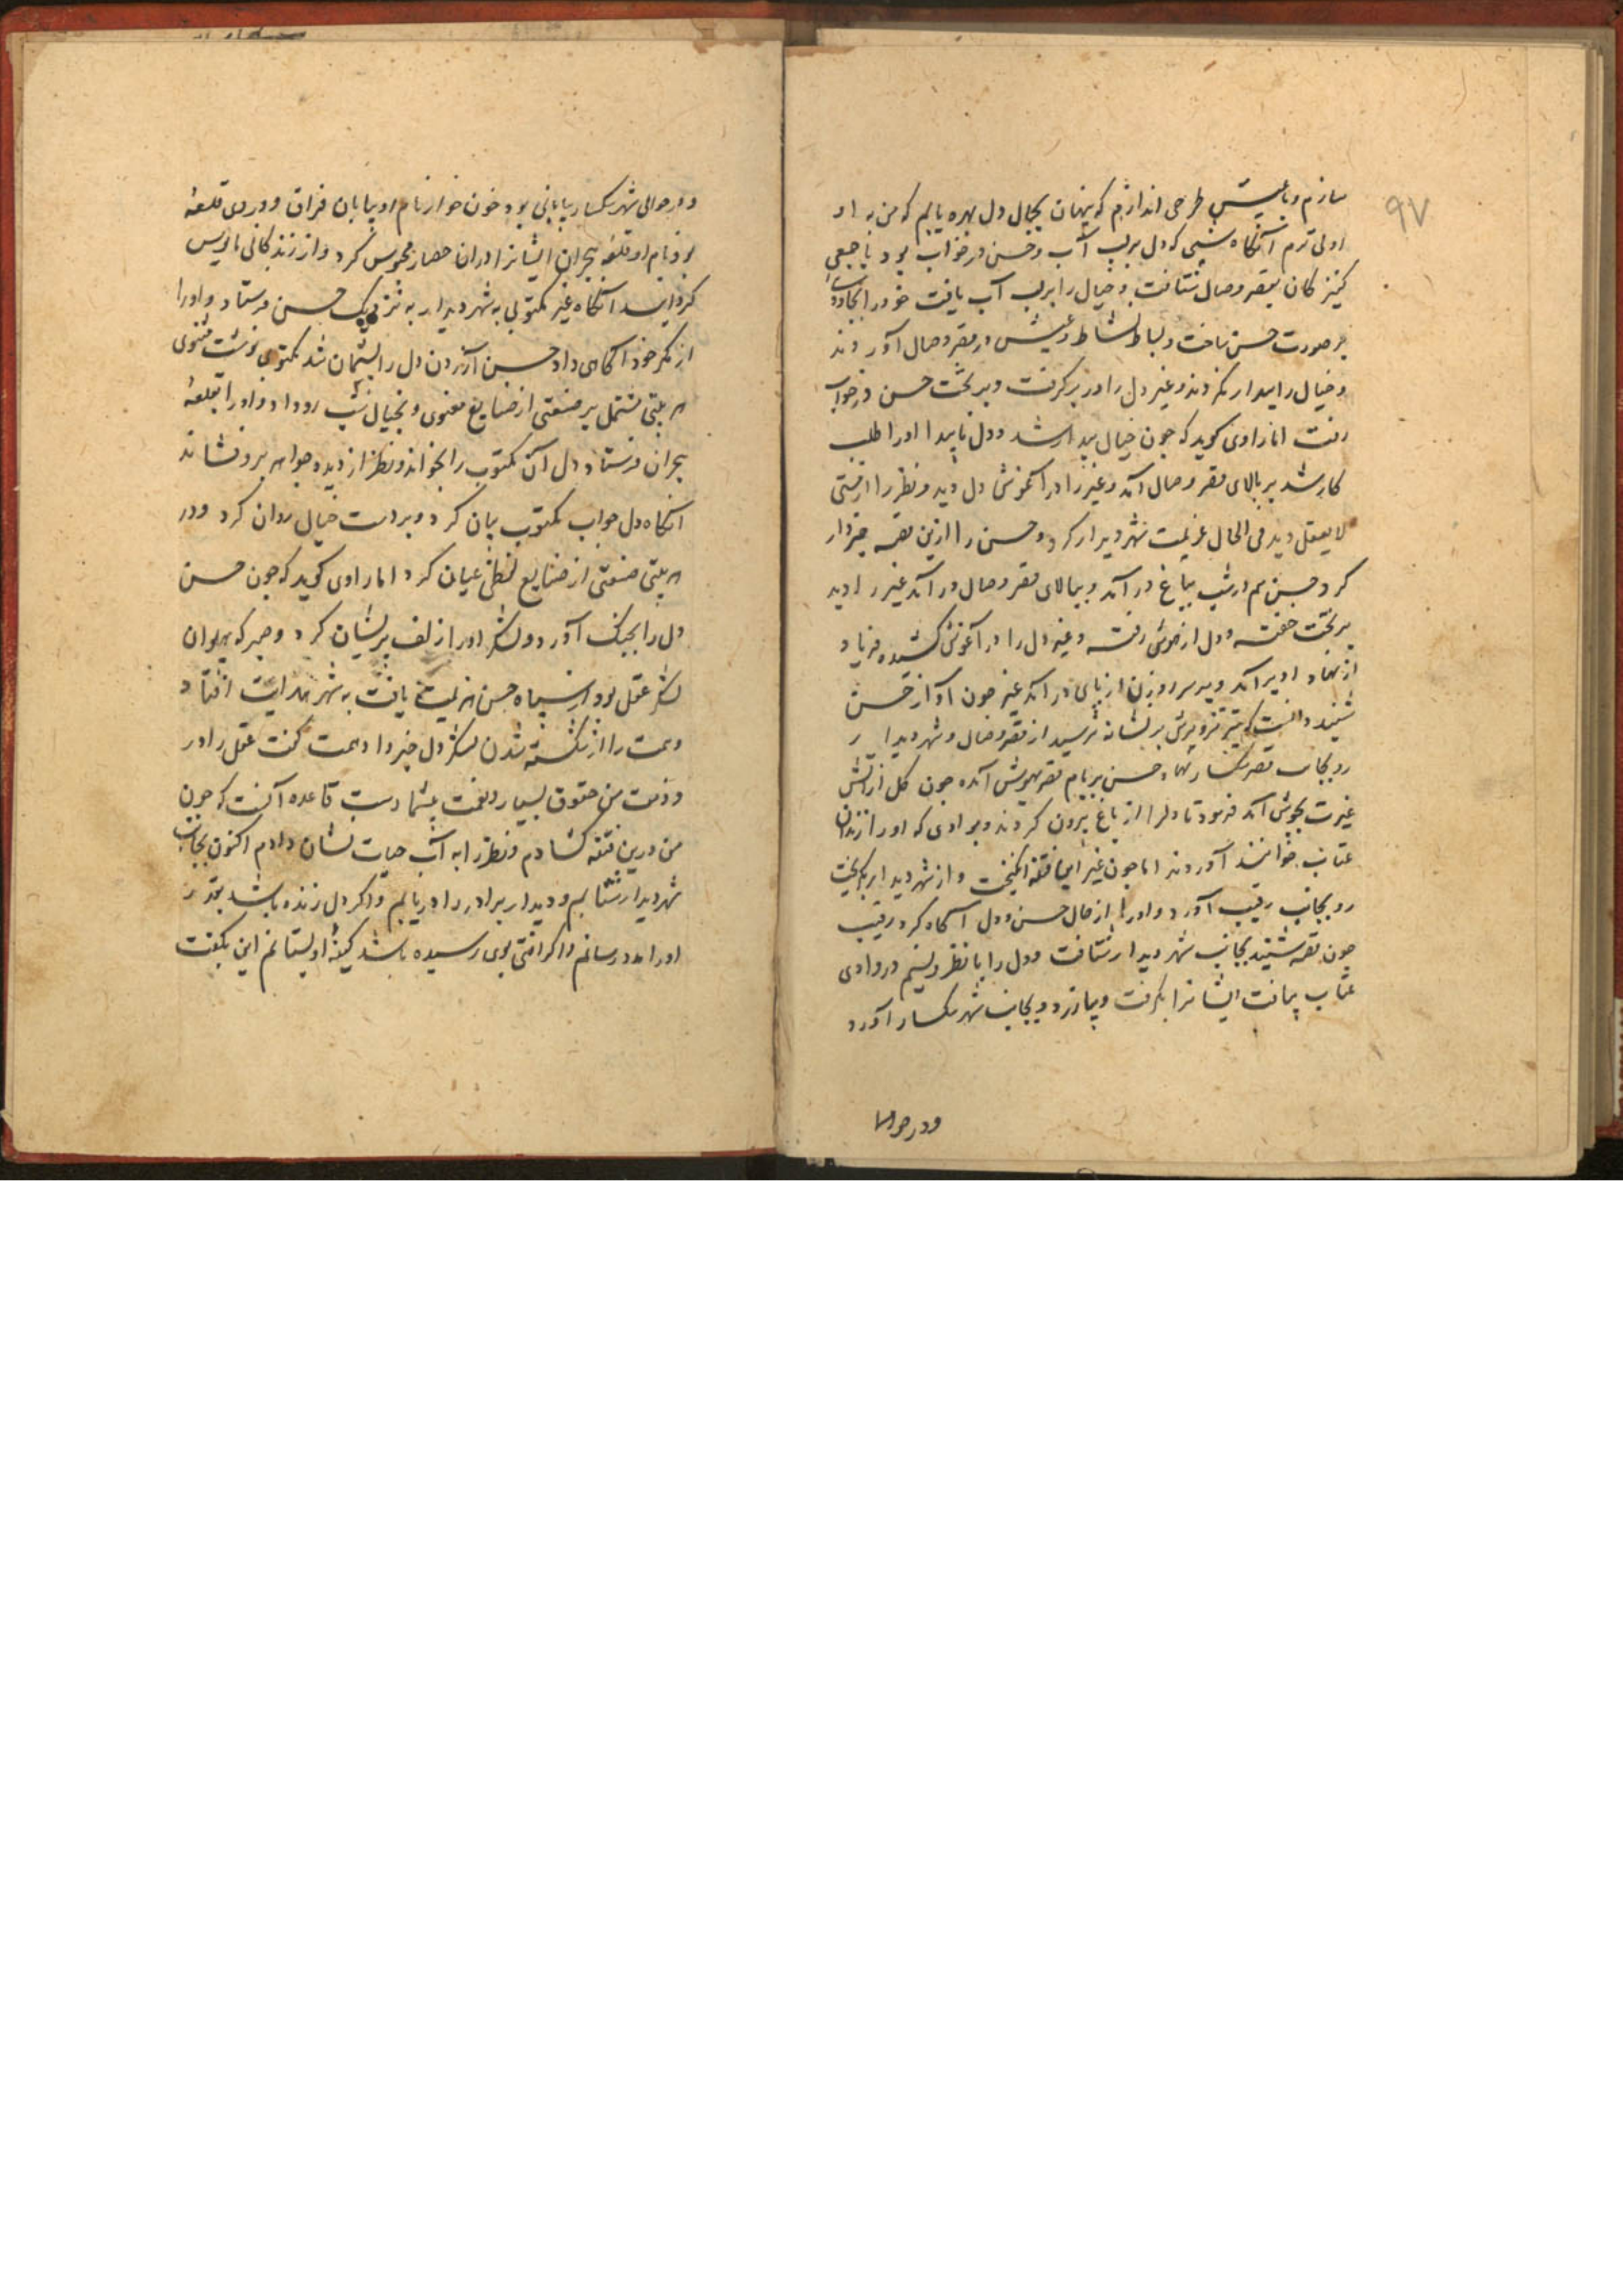 ۹۷
سازم و با عیش طرحی اندازم که پنهان بجمال دل بهره یابم که من به او
اولی ترم آنکاه شبی که دل بر لب آب و حسن در خواب بود با جمعی
کنیزکان بقصر وصال شتافت و خیال را بر لب آب یافت خود را بجادویی
بر صورت حسن ساخت و بساط نشاط و عیش در قصر وصال آوردند
و خیال را بیدار نکردند و غیر دل را در بر کرفت و بر تخت حسن در خواب
رفت اما راوی کوید که چون خیال بیدار شد و دل ناپیدا او را طلب
کار شد بر بالای قصر وصال آمد و غیر را در آغوش دل دید و نظر را از مستی
لا یعقل دید فی الحال عزیمت شهر دیدار کرد و حسن را ازین قصه خبردار
کرد حسن هم در شب بباغ در آمد و ببالای قصر وصال در آمد غیر را دید
بر تخت خفته و دل از هوش رفته و غیر دل را در آغوش کشیده فریاد
از نهاد او برآمد و بر سر روزن از پای در آمد غیر چون آواز حسن
شنید دانست که تیر تزویرش بر نشانه نرسید از قصر وصال و شهر دیدار
رو بجانب قصر سکسار نهاد حسن بر بام قصر بهوش آمده چون کل از آتش
غیرت بجوش آمد فرمود تا دلرا از باغ بیرون کردند و بوادی که او را زندان
عتاب خوانند آوردند اما چون غیر این فتنه انکیخت و از شهر دیدار بکریخت
رو بجانب رقیب آورد و او را از حال حسن و دل آکاه کرد رقیب
چون قصه شنید بجانب شهر دیدار شتافت و دل را با نظر و نسیم در وادی
عتاب یافت ایشانرا بکرفت و بیازرد و بجانب شهر سکسار آورد
و در حوالی
و در حوالی شهر سکسار بیابانی بود خون خوار نام او بیابان فراق و در وی قلعهٔ
بود نام او قلعه هجران ایشانرا در ان حصار محبوس کرد و از زندکانی مایوس
کردانید آنکاه غیر مکتوبی به شهر دیدار به نزدیک حسن فرستاد و او را
از مکر خود آکاهی داد حسن از آزردن دل پشیمان شد مکتوبی نوشت مثنوی
هر بیتی مشتمل بر صنعتی از صنایع معنوی و بخیال شب رو داد و او را بقلعهٔ
هجران فرستاد دل آن مکتوب را بخواند و نظر از دیده جواهر برو فشاند
آنکاه دل جواب مکتوب بیان کرد و بر دست خیال روان کرد و در
هر بیتی صنعتی از صنایع لفظی عیان کرد اما راوی کوید که چون حسن
دل را بجنک آورد و لشکر او را از زلف پریشان کرد و صبر که پهلوان
لشکر عقل بود از سپاه حسن هزیمت یافت به شهر هدایت افتاد
و همت را از شکسته شدن لشکر دل خبر داد همت کفت عقل را در
و ذمت من حقوق بسیار و نعمت بیشمار است قاعده آنست که چون
من درین فتنه کشادم و نظر را به آب حیات نشان دادم اکنون بجانب
شهر دیدار شتابم و دیدار برادر را دریابم و اکر دل زنده باشد بقدر
او را مدد رسانم و اکر آفتی بوی رسیده باشد کینهٔ او بستانم این بکفت